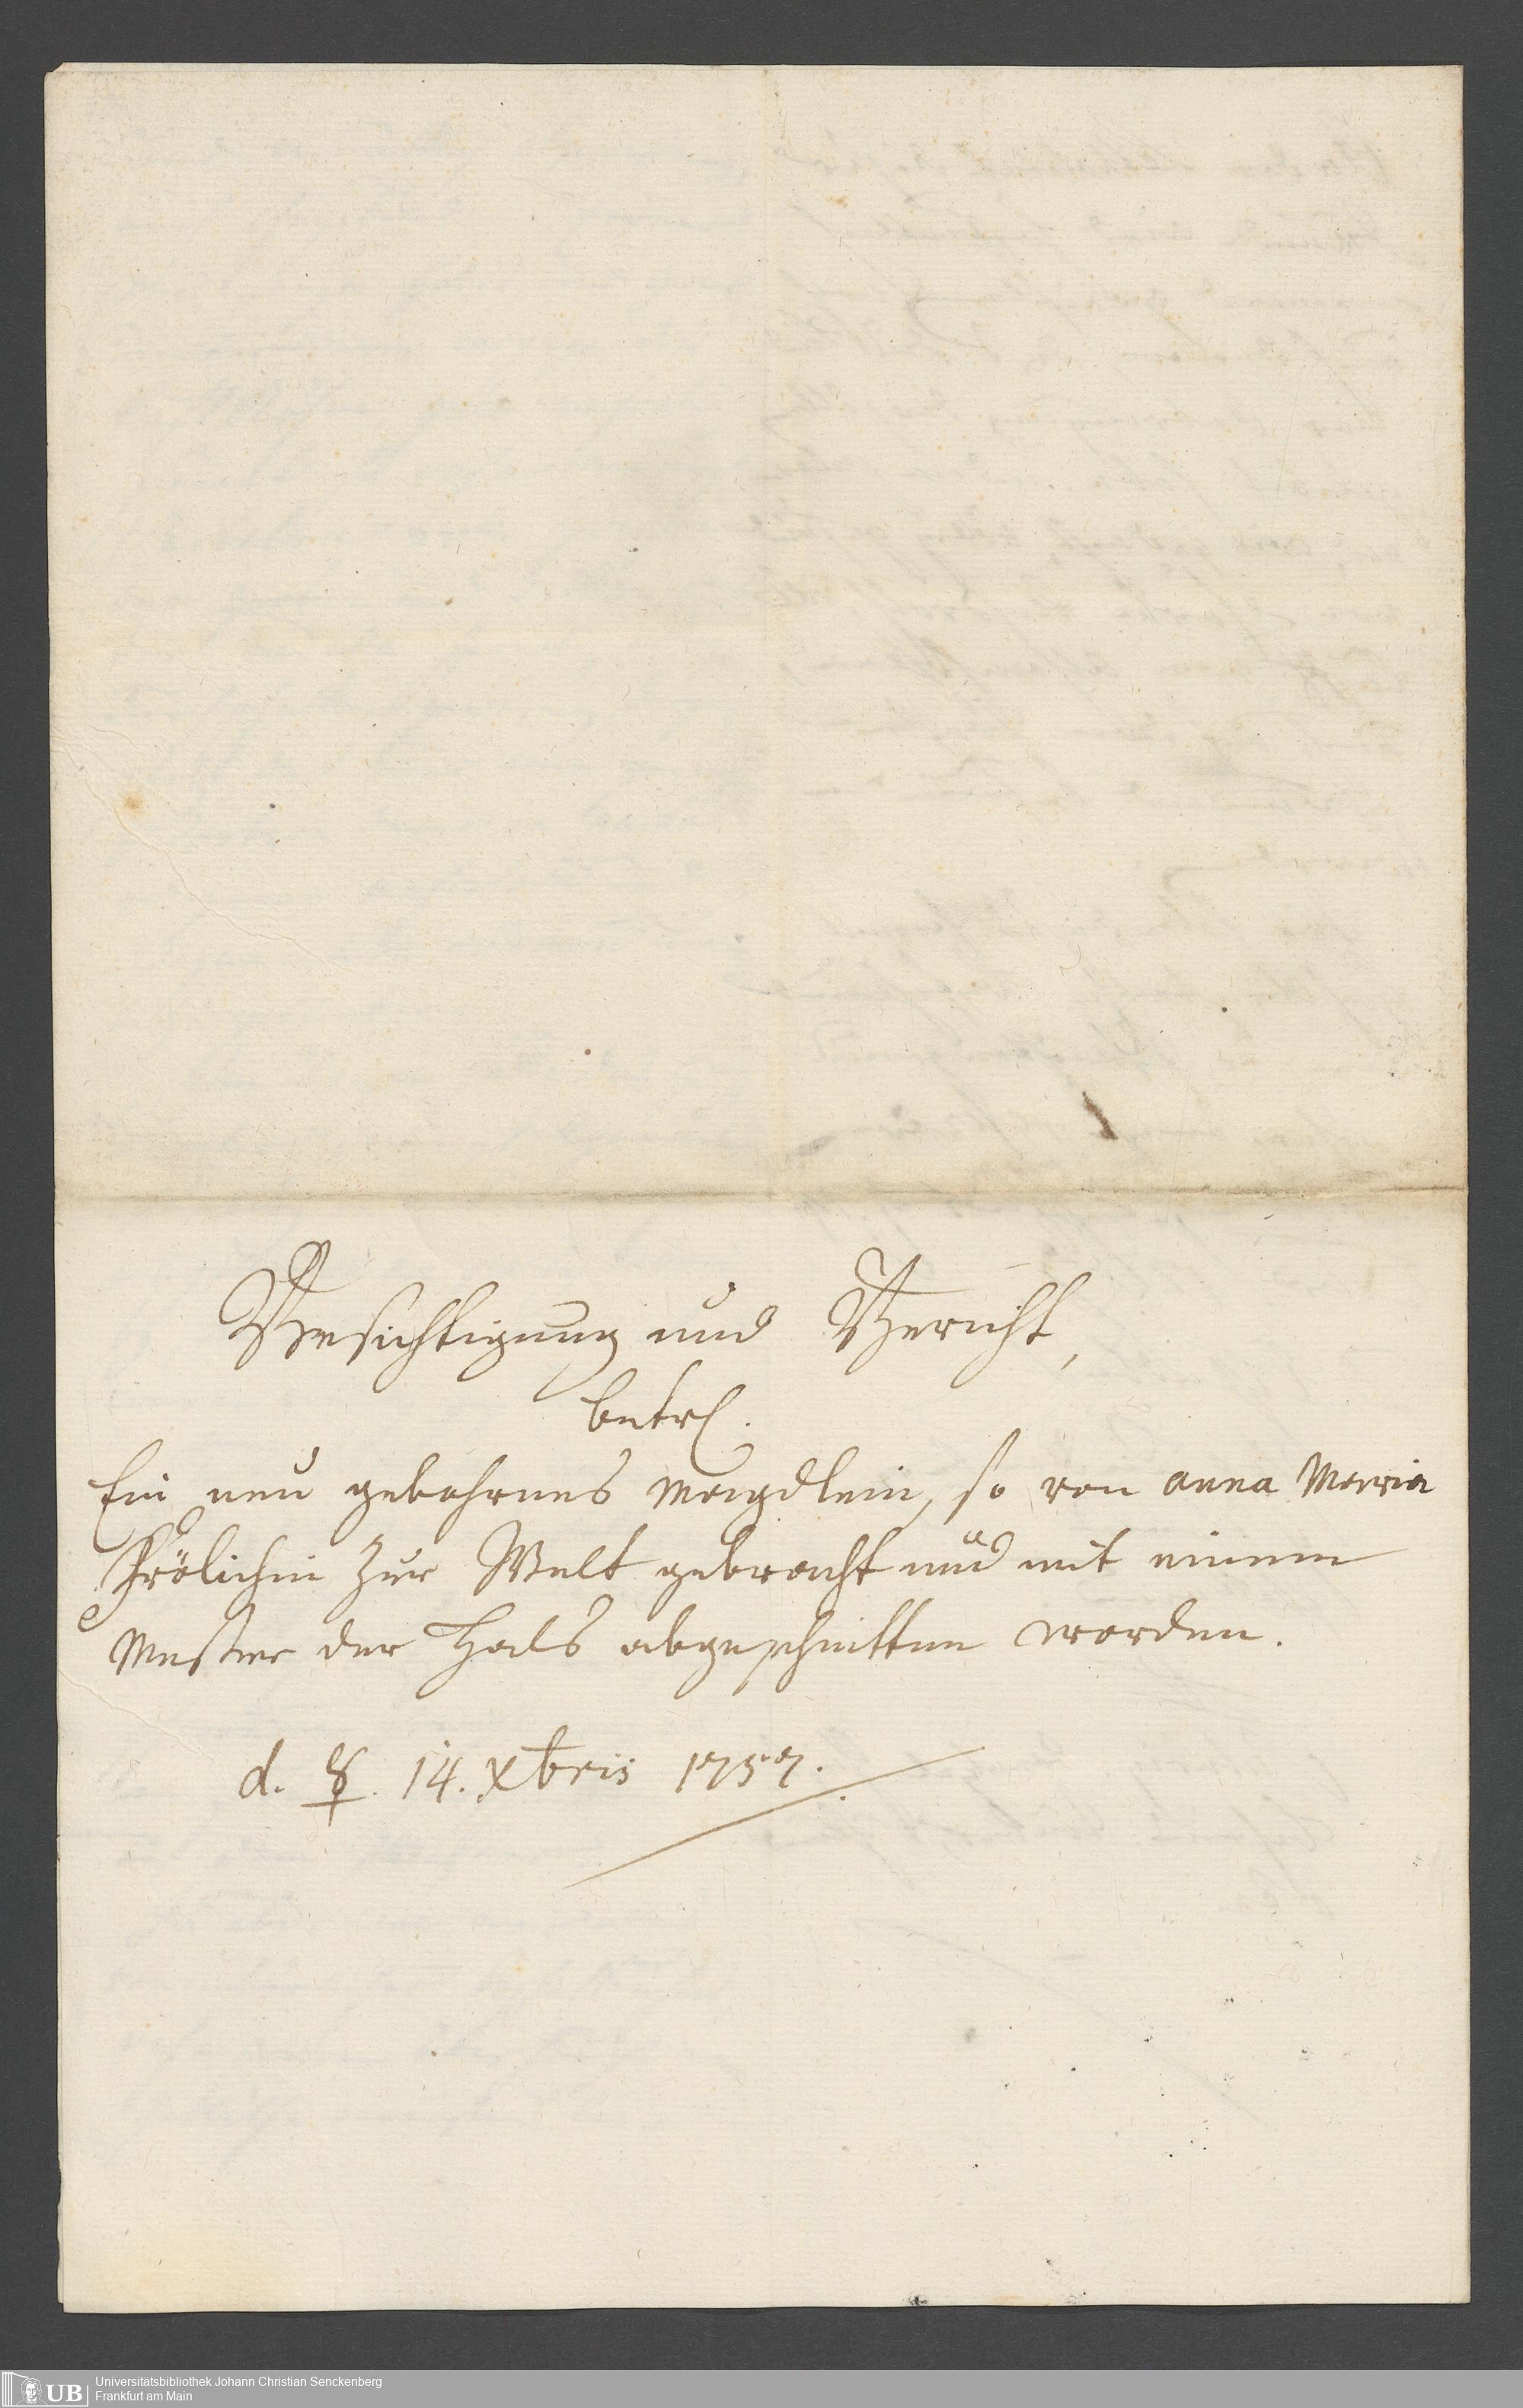 Besichtigung und Bericht,
betrl.
Ein neu gebohrnes Mägdlein, so von anna Maria
Frölichin zur Welt gebracht und mit einem
Messer der Hals abgeschnitten worden.
d. ☿. 14. Xbris 1757.
UB
Universitätsbibliothek Johann Christian Senckenberg
Frankfurt am Main